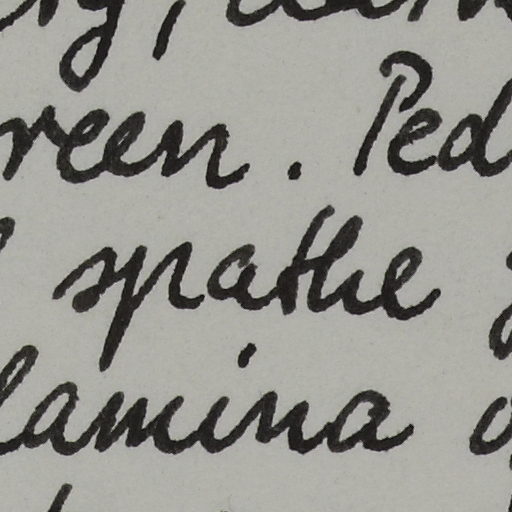 reen. Ped
spathe
lamina